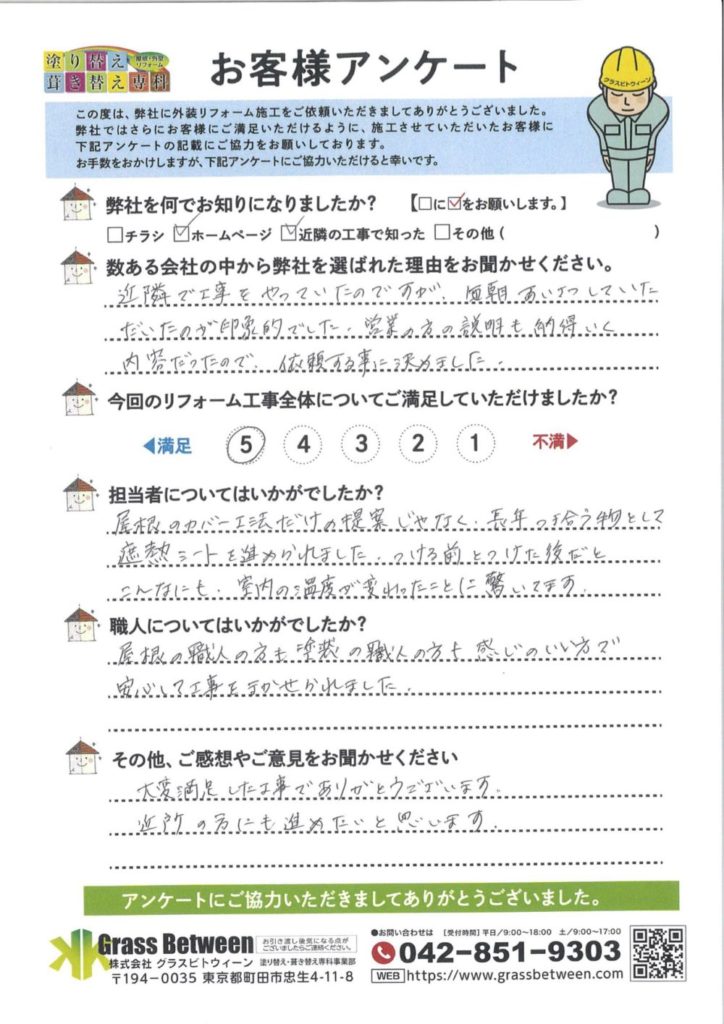 塗り替え 屋根・外壁リフォーム
葺き替え専科
お客様アンケート
グラスビトウィーン
この度は、弊社に外装リフォーム施工をご依頼いただきましてありがとうございました。
弊社ではさらにお客様にご満足いただけるように、施工させていただいたお客様に
下記アンケートの記載にご協力をお願いしております。
お手数をおかけしますが、下記アンケートにご協力いただけると幸いです。
弊社を何でお知りになりましたか? 【□に☑をお願いします。】
□チラシ ☑ホームページ ☑近隣の工事で知った □その他 ( )
数ある会社の中から弊社を選ばれた理由をお聞かせください。
近隣で工事をやっていたのですが、毎朝あいさつしていた
だいたのが印象的でした。営業の方の説明も納得いく
内容だったので、依頼する事に決めました。
今回のリフォーム工事全体についてご満足していただけましたか?
◀満足 5 4 3 2 1 不満▶
担当者についてはいかがでしたか?
屋根のカバー工法だけの提案じゃなく、長年つき合う物として
遮熱シートを進められました。つける前とつけた後だと
こんなにも、室内の温度が変わったことに驚いてます。
職人についてはいかがでしたか?
屋根の職人の方も塗装の職人の方も感じのいい方で
安心して工事をまかせられました。
その他、ご感想やご意見をお聞かせください
大変満足した工事でありがとうございます。
近所の方にも進めたいと思います。
アンケートにご協力いただきましてありがとうございました。
Grass Between お引き渡し後気になる点がございましたらご連絡ください。
株式会社 グラスビトウィーン 塗り替え・葺き替え専科事業部
〒194-0035 東京都町田市忠生4-11-8
●お問い合わせは [受付時間] 平日/9:00〜18:00 土/9:00〜17:00
042-851-9303
WEB https://www.grassbetween.com/